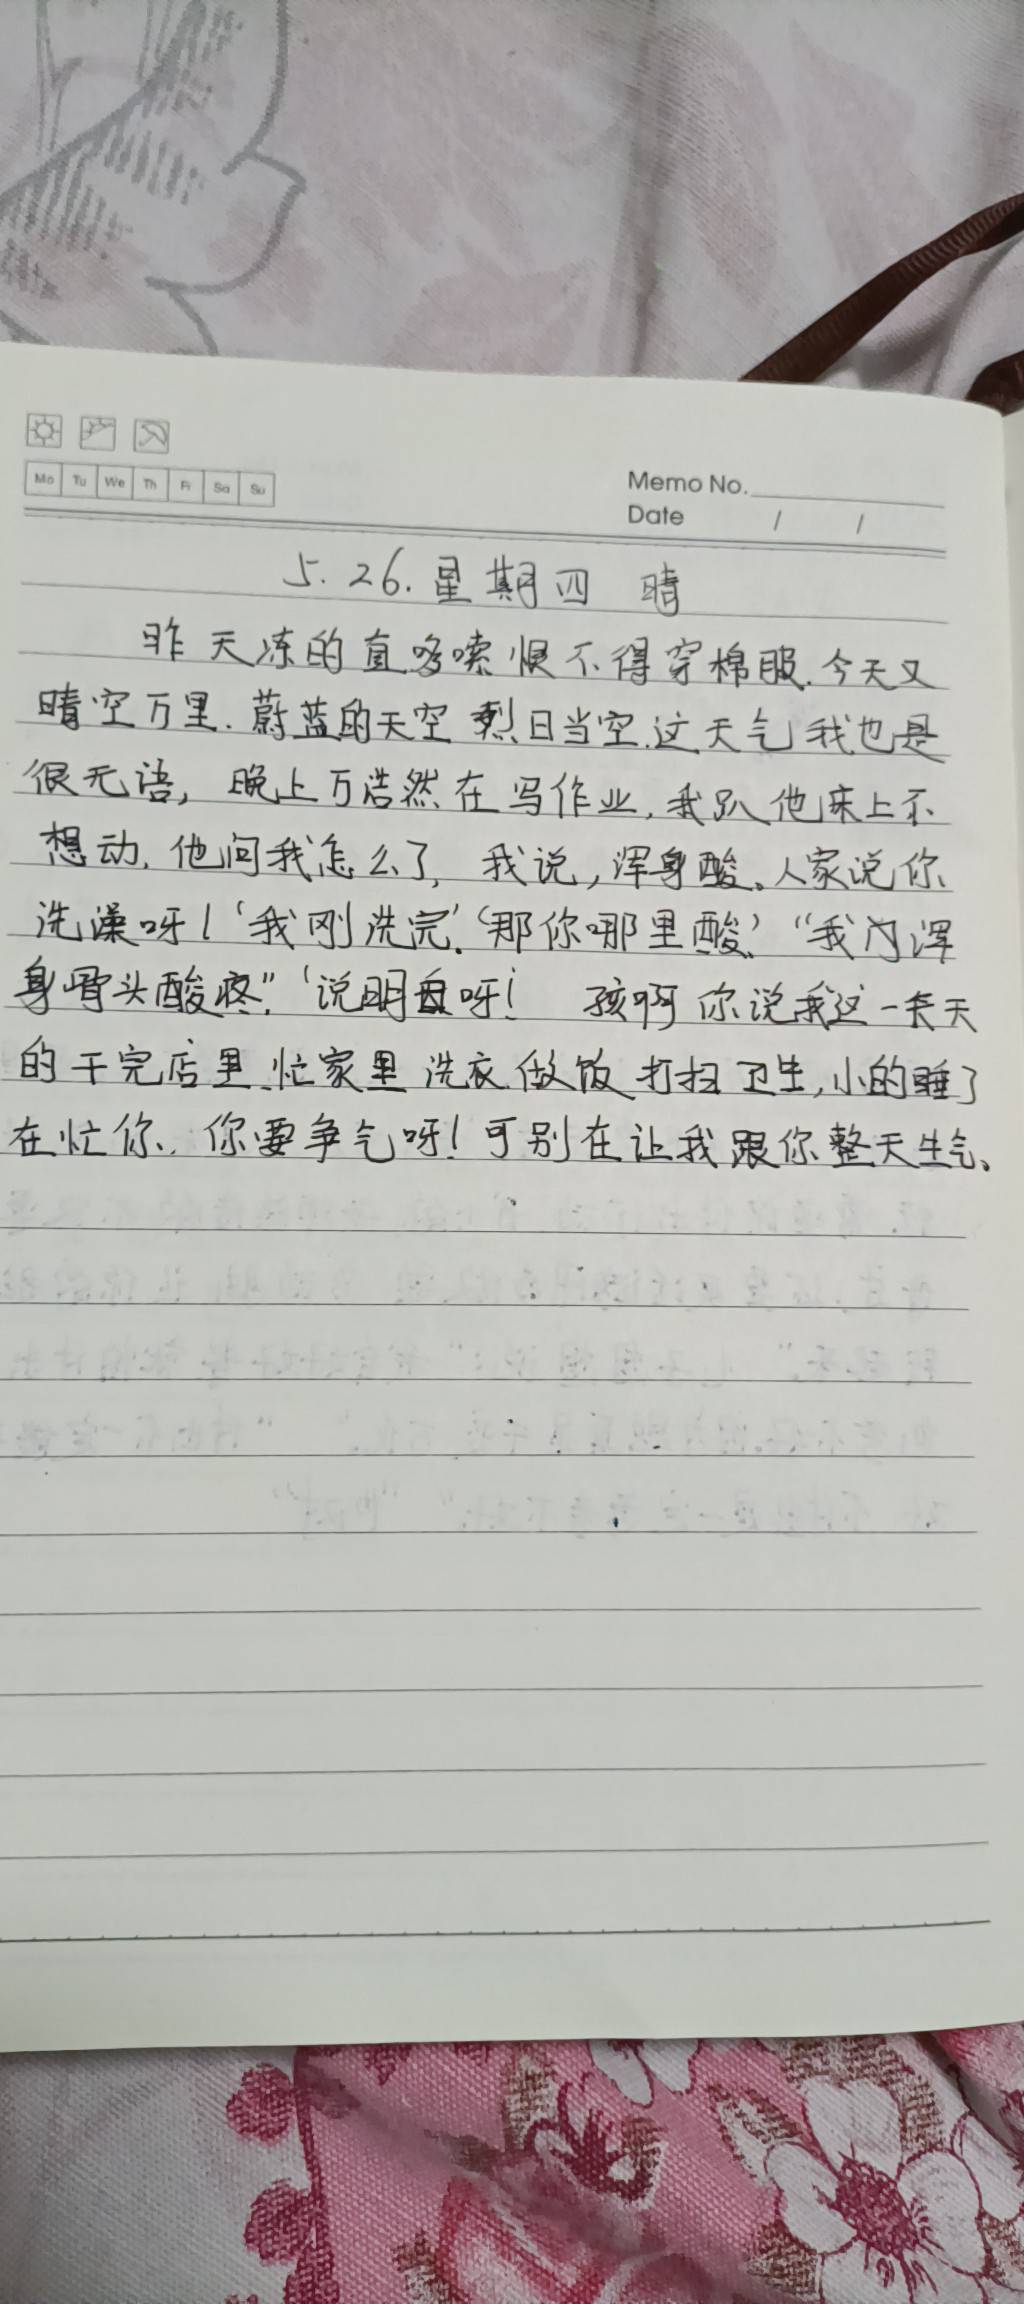 Mo Tu We Th Fr Sa Su
Memo No.
Date / /
5.26.星期四 晴
昨天冻的直哆嗦恨不得穿棉服.今天又
晴空万里.蔚蓝的天空 烈日当空.这天气我也是
很无语,晚上万浩然在写作业,我趴他床上不
想动.他问我怎么了,我说,浑身酸。人家说你
洗澡呀!‘我刚洗完’.‘那你哪里酸’“我内浑
身骨头酸疼”.‘说明白呀! 孩啊你说我这一天天
的干完店里.忙家里洗衣做饭打扫卫生,小的睡了
在忙你.你要争气呀!可别在让我跟你整天生气。